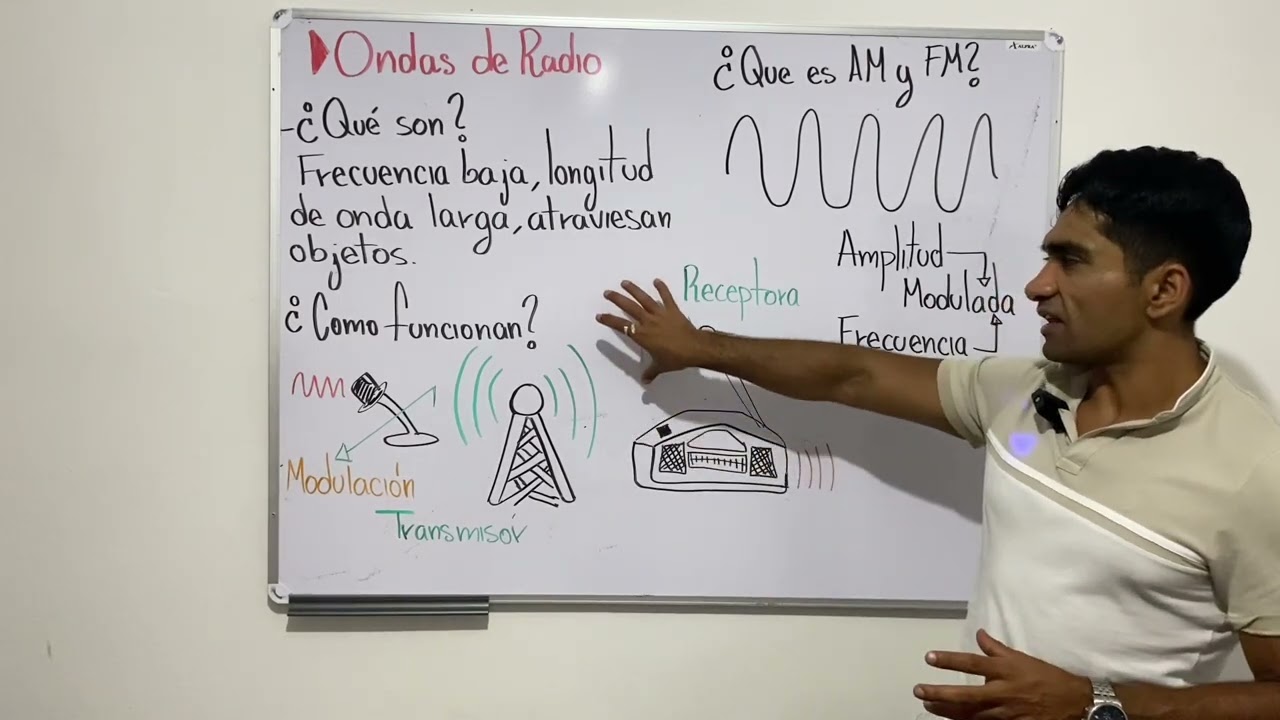 Ondas de Radio
-¿Qué son?
Frecuencia baja, longitud
de onda larga, atraviesan
objetos.
¿Como funcionan?
Modulación
Transmisor
Receptora
¿Que es AM y FM?
Amplitud
Modulada
Frecuencia
ALFRA